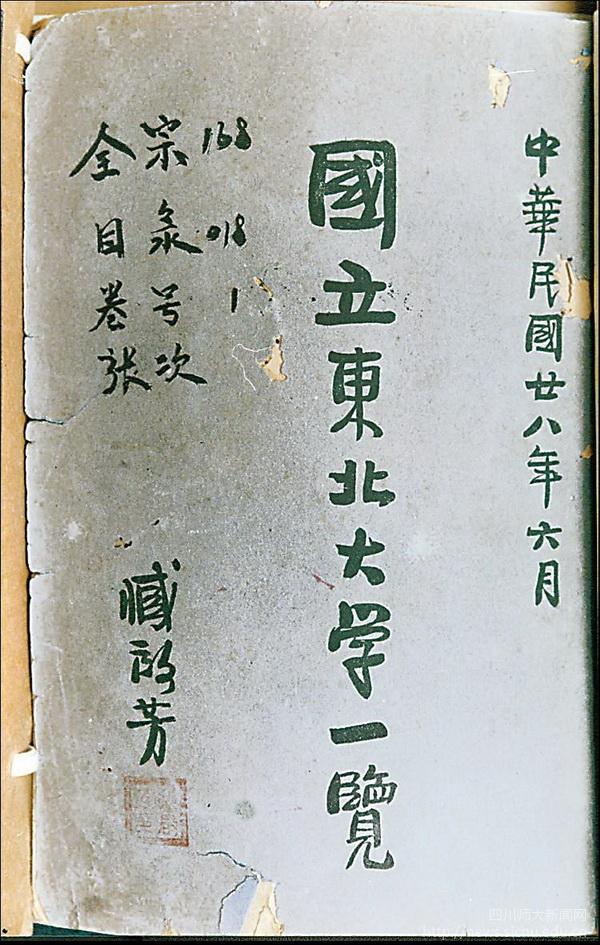 中華民國廿八年六月
國立東北大学一覽
全宗 168
目彔 018
卷号 1
张次
臧啟芳
四川师大新闻网